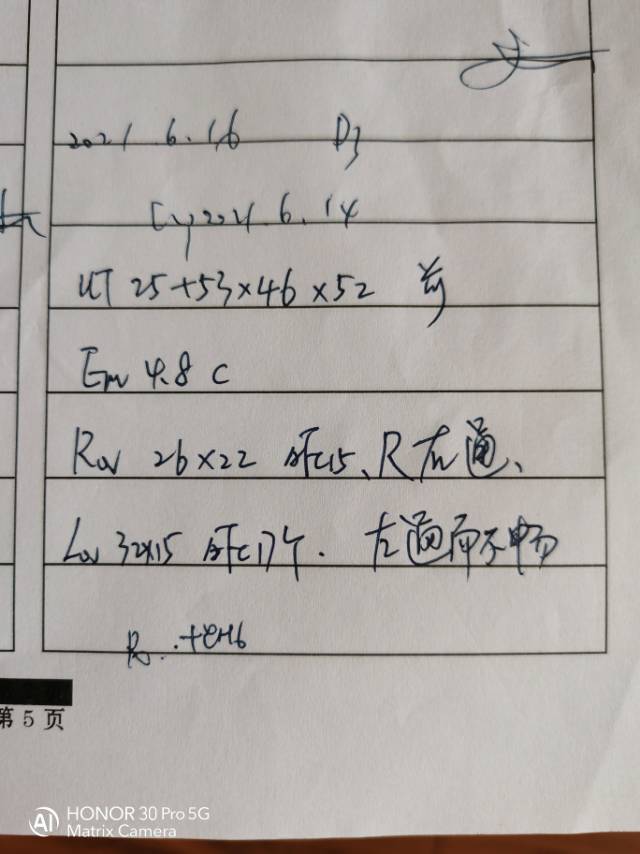 2021.6.16 D3
2021.6.14
UT 25+53×46×52
Em 4.8 C
Rov 26×22 AFC15、R 通、
Lov 32×15 AFC17个. 左通而不畅
第 5 页
HONOR 30 Pro 5G
AI
Matrix Camera